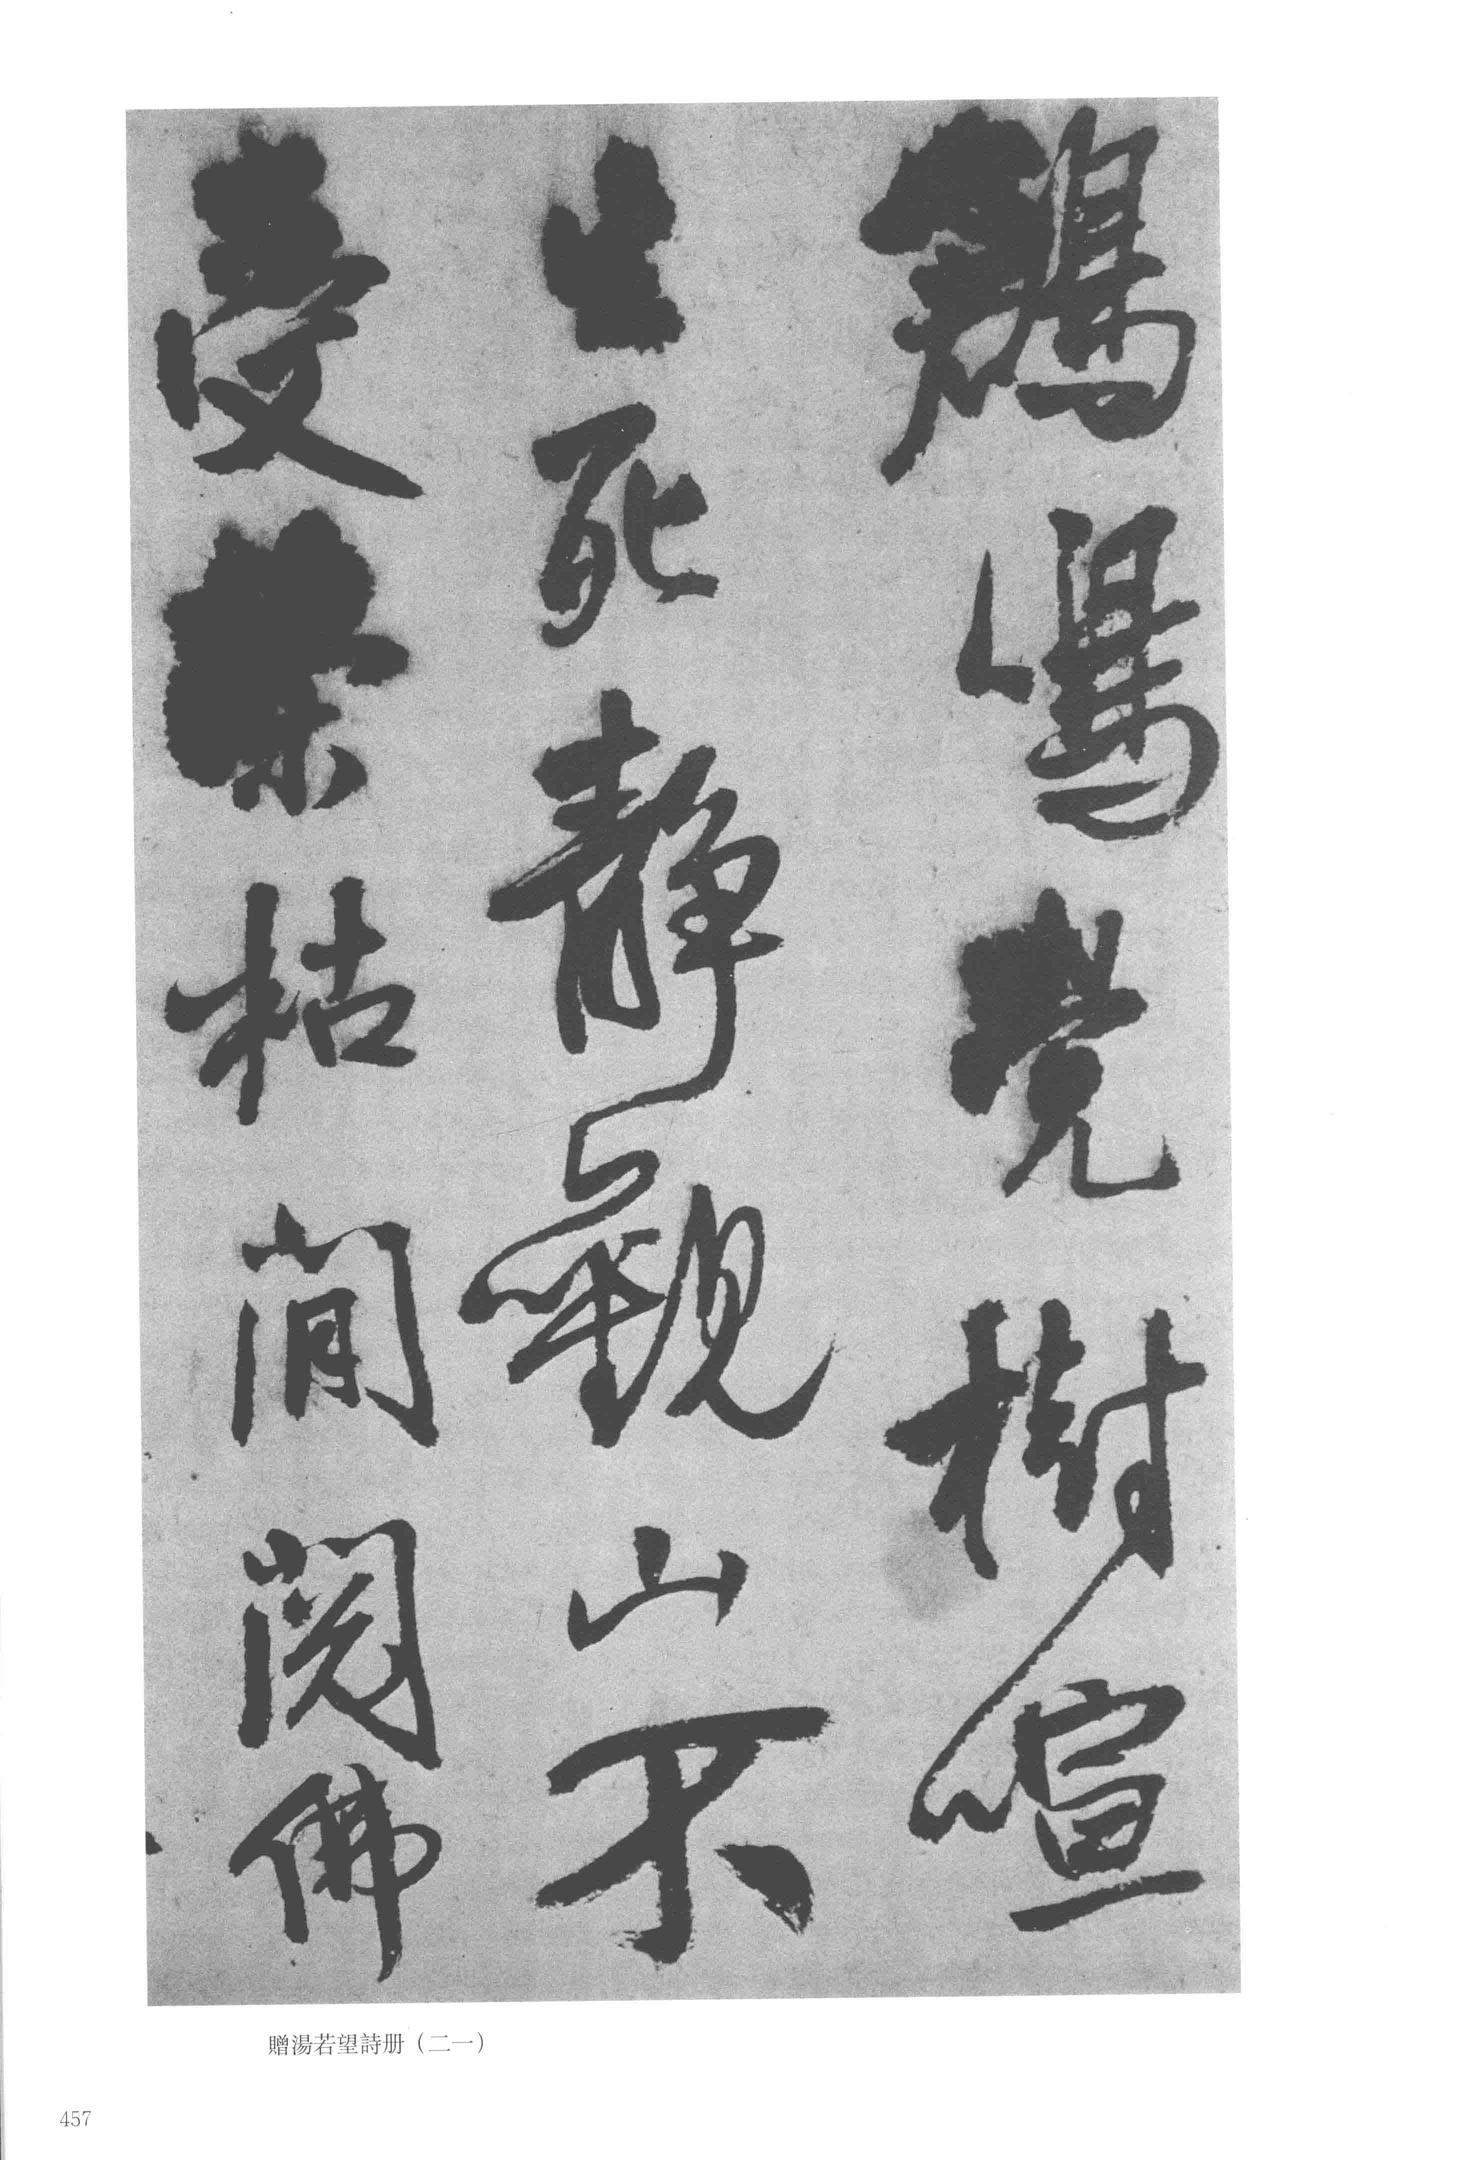 鷄鳴覺樹喧
生死靜觀山不
受榮枯閒閱佛
贈湯若望詩册（二一）
457